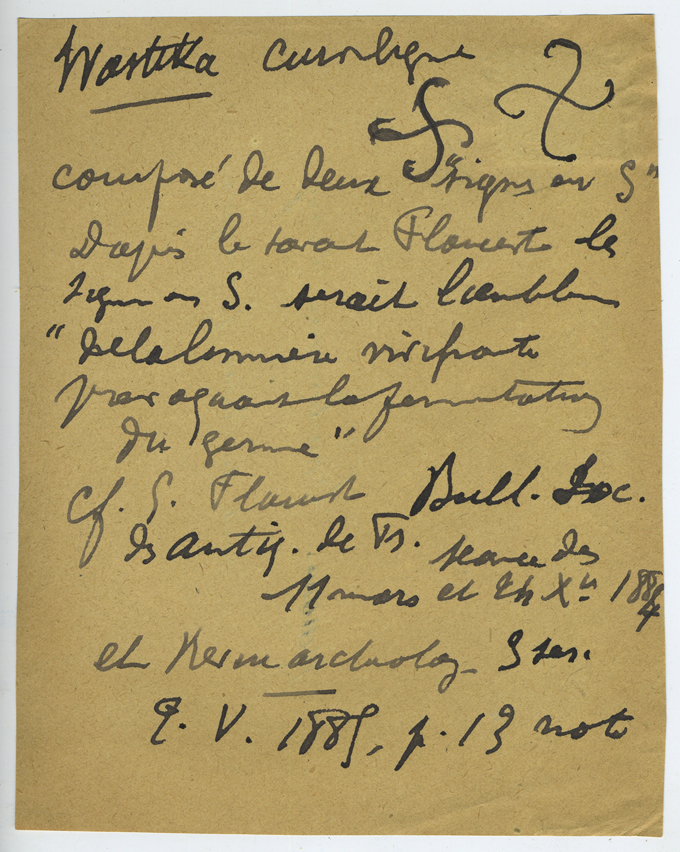 Wastika curviligne
composé de deux "signes en S"
D'après le savant Flouest le
signe en S. serait l'emblème
"de la lumière vivifiante
provoquant la fermentation
du germe"
cf. G. Flouest Bull. Soc.
des antiq. de Fr. séance des
11 mars et 24 Xbre 1884
et Revue archéolog. 3 ser.
T. V. 1885, p. 13 note